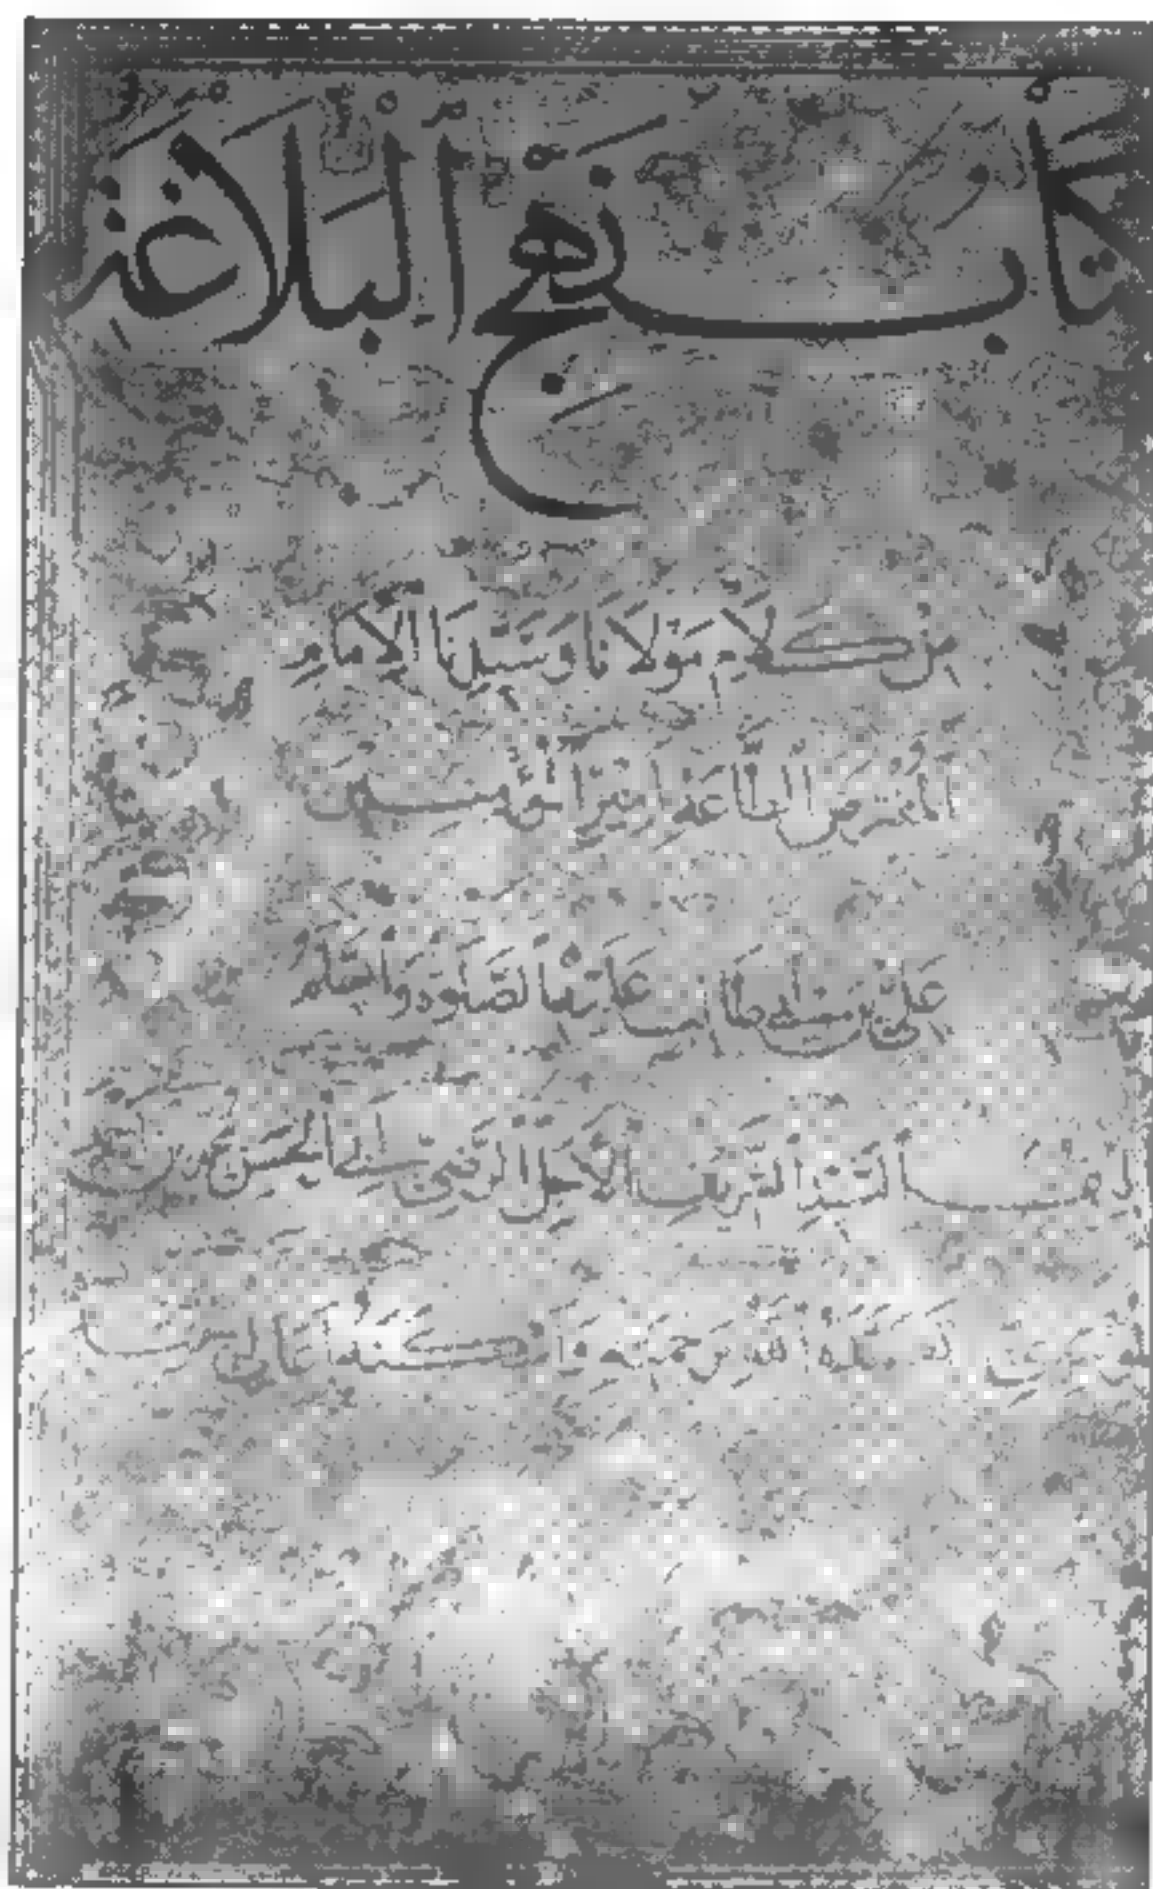 كتاب نهج البلاغة
من كلام مولانا وسيدنا الإمام
المفترض الطاعة أمير المؤمنين
علي بن أبي طالب عليه الصلوة والسلم
السيد الشريف الأجل الرضي أبي الحسن
الله برحمته وأسكنه أعالي